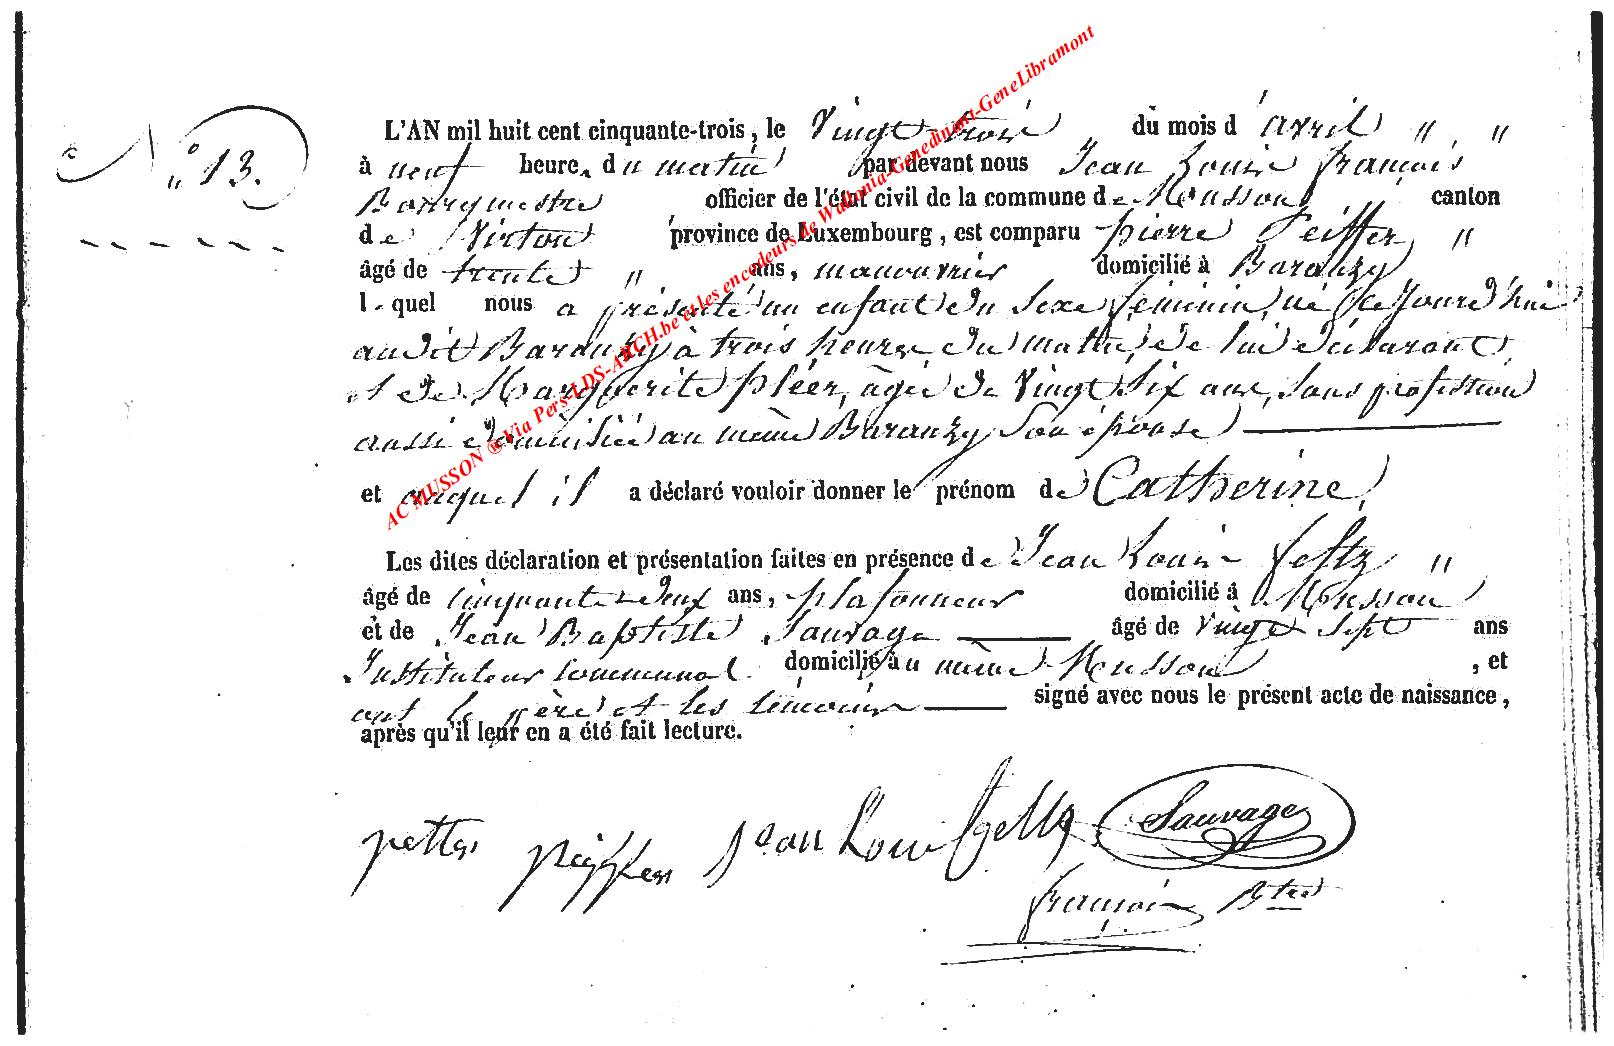 N° 13.
L'AN mil huit cent cinquante-trois, le Vingt trois du mois d'avril " "
à neuf heures du matin par devant nous Jean Louis françois
Bourgmestre officier de l'état civil de la commune de Musson canton
de Virton province de Luxembourg, est comparu pierre Peiffer "
âgé de trente " ans, manouvrier domicilié à Baranzy
lequel nous a présenté un enfant du sexe féminin, né ce jourd'hui
audit Baranzy à trois heures du matin, de lui déclarant
et de Marguerite pléer, âgée de vingt six ans, sans profession
aussi domiciliée au même Baranzy son épouse
et auquel il a déclaré vouloir donner le prénom de Catherine
Les dites déclaration et présentation faites en présence de Jean Louis "
âgé de cinquante deux ans, plafonneur domicilié à Musson
et de Jean Baptiste Sauvage âgé de vingt sept ans
Instituteur communal domicilié au même Musson, et
ont le père et les témoins signé avec nous le présent acte de naissance,
après qu'il leur en a été fait lecture.
petter Jean Loui Sauvage
françois Btre
AC MUSSON ®Via Pers-LDS-ARCH.be et les encodeurs de Wallonia-Genedinant-GeneLibramont